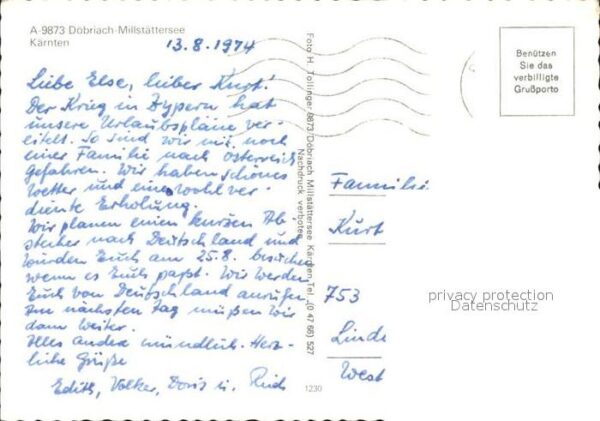 A-9873 Döbriach-Millstättersee
Kärnten
13.8.1974
Liebe Else, lieber Kurt!
Der Krieg in Zypern hat
unsere Urlaubspläne ver-
eitelt. So sind wir mit noch
einer Familie nach Österreich
gefahren. Wir haben schönes
Wetter und eine wohlver-
diente Erholung.
Wir planen einen kurzen Ab-
stecher nach Deutschland und
würden Euch am 25.8. besuchen
wenn es Euch paßt. Wir werden
Euch von Deutschland anrufen
Am nächsten Tag müßen wir
dann weiter.
Alles andre mündlich. Herz-
liche Grüße
Edith, Volker, Doris u.
Foto H. Tollinger 9873 Döbriach Millstättersee Kärnten, Tel. (0 47 66) 527
Nachdruck verboten
1230
Benützen
Sie das
verbilligte
Grußporto
Familie
Kurt
753
Linde
West
privacy protection
Datenschutz